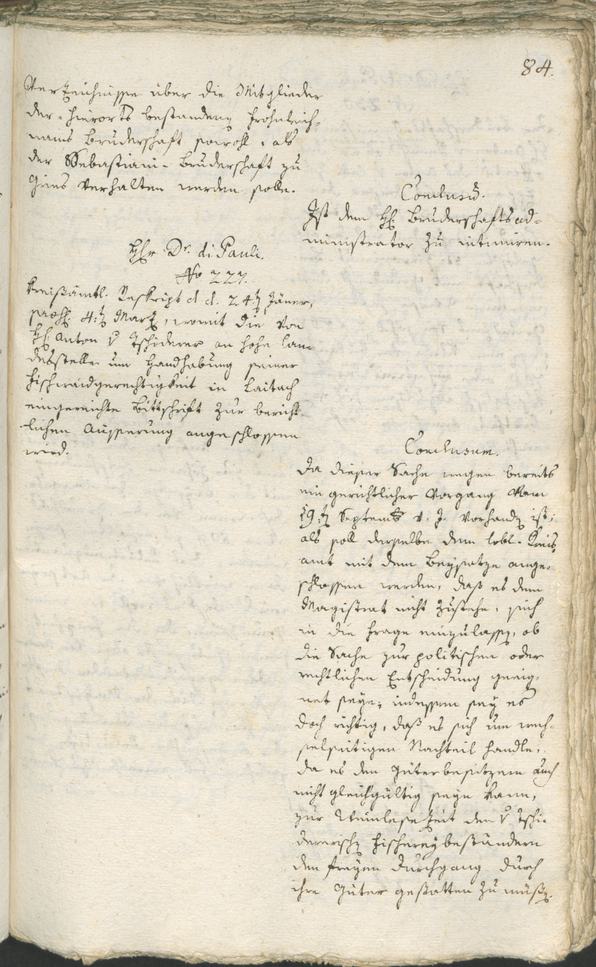 84.
Verzeichnisse über die Mitglieder
der hierorts bestandenen Frohnleich-
nams Bruderschaft sowohl, als
der Sebastiani-Bruderschaft zu
Gries verhalten werden solle.
Conclusum.
Ist dem HH. Bruderschaftsad-
ministrator zu intimiren.
Herr Dr. di Pauli.
No 227.
Kreisämtl. Reskript d. d. 24t Jäner,
4t Marz, womit die von
HH. Anton v Tschiderer an hohe Lan-
desstelle um Handhabung seiner
Fischwaidgerechtigkeit in Laitach
eingereichte Bittschrift zur bericht-
lichen Äusserung angeschlossen
wird.
Conclusum.
Da dieser Sache wegen bereits
ein gerichtlicher Vorgang vom
19t Septemb. v. J. vorhanden ist;
als soll derselbe dem löbl. Kreis-
amt mit dem Beysatze ange-
schlossen werden, daß es dem
Magistrat nicht zustehe, sich
in die Frage einzulassen, ob
die Sache zur politischen oder
rechtlichen Entscheidung geeig-
net seye; indessen sey es
doch richtig, daß es sich um wech-
selseitigen Nachteil handle,
da es den Güterbesitzern auch
nicht gleichgültig seyn kann,
zur Weinlesezeit den v Tschi-
dererischen Fischereybeständern
den freyen Durchgang durch
ihre Güter gestatten zu müßen.